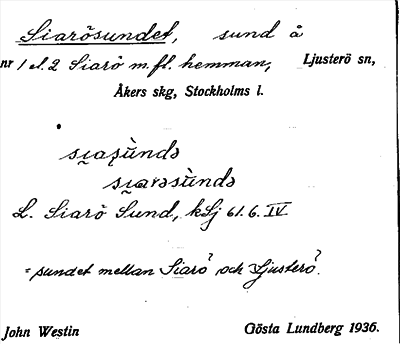 Siarösundet, sund å
nr 1 el. 2 Siarö m.fl. hemman, Ljusterö sn,
Åkers skg, Stockholms l.
L. Siarö Sund, kSj 61.6. IV
= sundet mellan Siarö och Ljusterö.
John Westin Gösta Lundberg 1936.